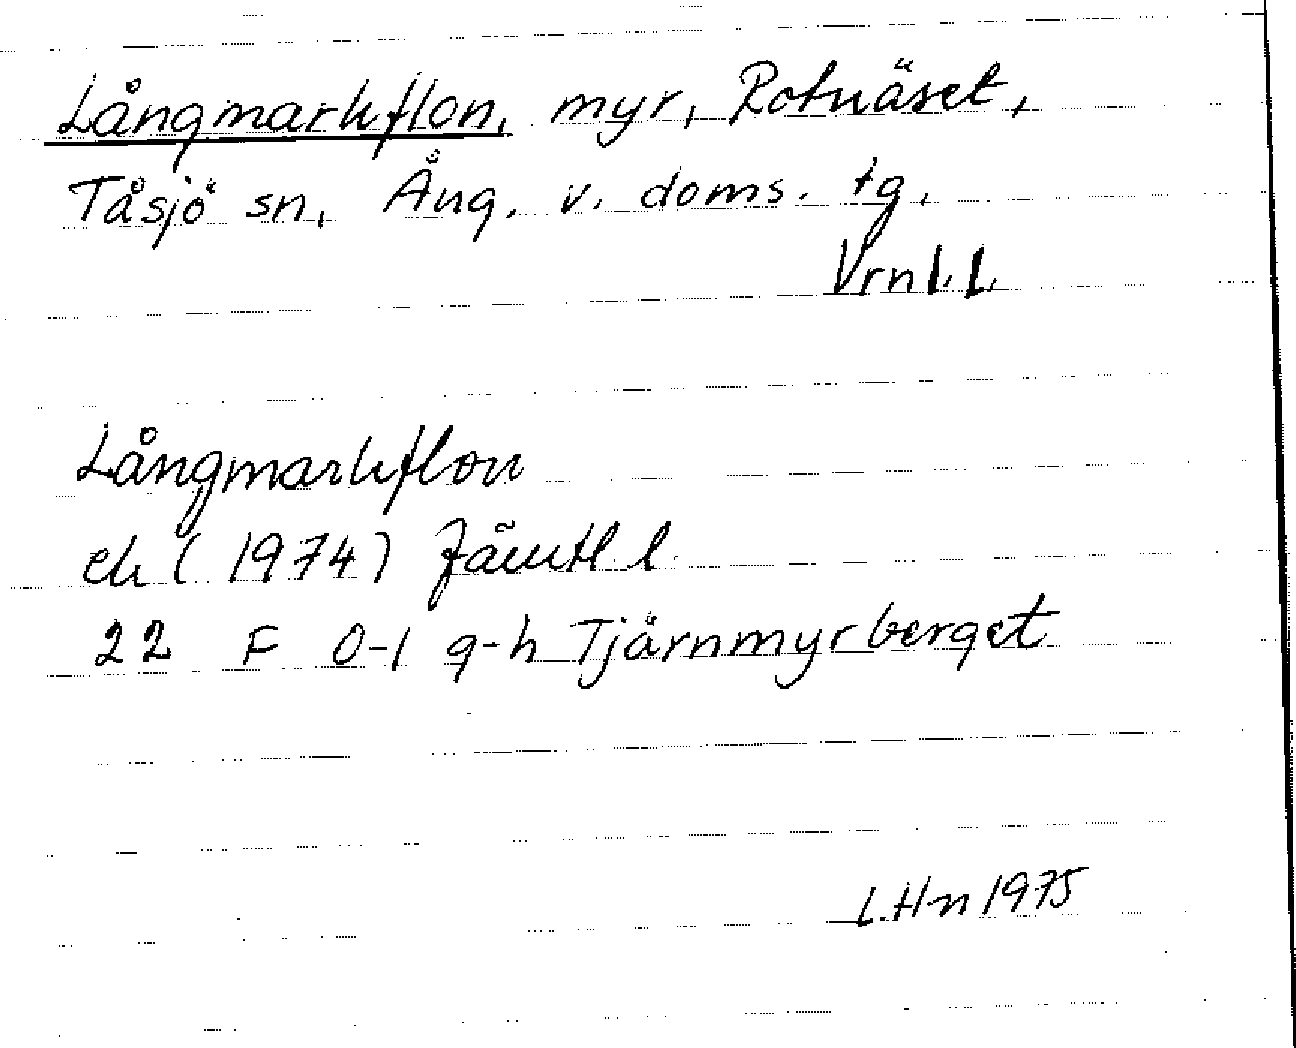 Långmarkflon, myr, Rotnäset,
Tåsjö sn, Ång. v. doms. tg.
Vrnl.l.
Långmarkflon
ek (1974) Jämtl. l.
22 F 0-1 g-h Tjärnmyrberget
L.Hn 1975